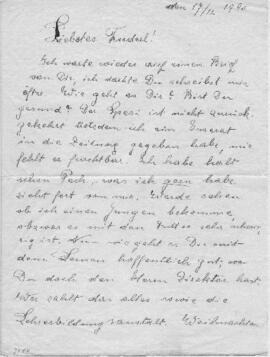 den 17/12 1940
Liebstes Friederl!
Ich warte wieder auf einen Brief
von Dir, ich dachte Du schreibst mir
öfter. Wie geht es Dir? Bist Du
gesund? Der Burschi ist nicht zurück
gekehrt trotzdem ich ein Inserat
in die Zeitung gegeben habe, mir
fehlt er furchtbar. Ich habe halt
schon Pech, was ich gern habe
zieht fort von mir. Werde sehen
ob ich einen Jungen bekomme,
obzwar es mit dem Futter sehr schwie
rig ist. Nun wie geht es Dir mit
dem Lernen hoffentlich gut, wo
Du doch den Herrn Direktor hast.
Wer zahlt das alles sowie die
Lehrerbildungsanstalt. Weihnachten